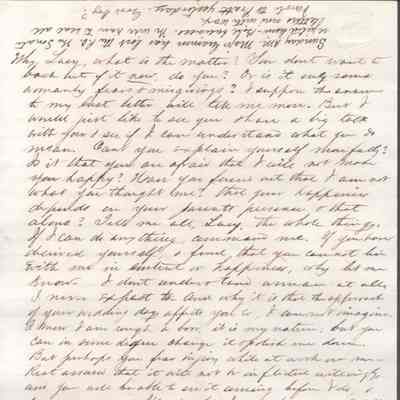 Sunday P.M. Major has lost the The Senate
Why, Lucy, what is the matter? You don't want to
back out of it now, do you? Or is it only some
womanly fears & misgivings? I suppose the answer
to my last letter will tell me more. But I
would just like to see you & have a big talk
with you & see if I can understand what you do
mean. Can you explain yourself more fully?
Is it that you are afraid that I will not make
you happy? Have you found out that I am not
what you thought me? that your happiness
depends on your parents presence & that
alone? Tell me all, Lucy, the whole thing.
If I can do anything, command me. If you have
deceived yourself, & find, that you can not live
with me in content or happiness, why let me
know. I don't understand woman at all,
I never expect to. And why it is that the approach
of your wedding day affects you so, I can not imagine.
I know I am rough & it is my nature, but you
can in some degree change it & polish me down.
But perhaps you fear injury while at work on me.
Rest assured that it will not be inflicted willingly
and you will be able to see it coming before I do, &